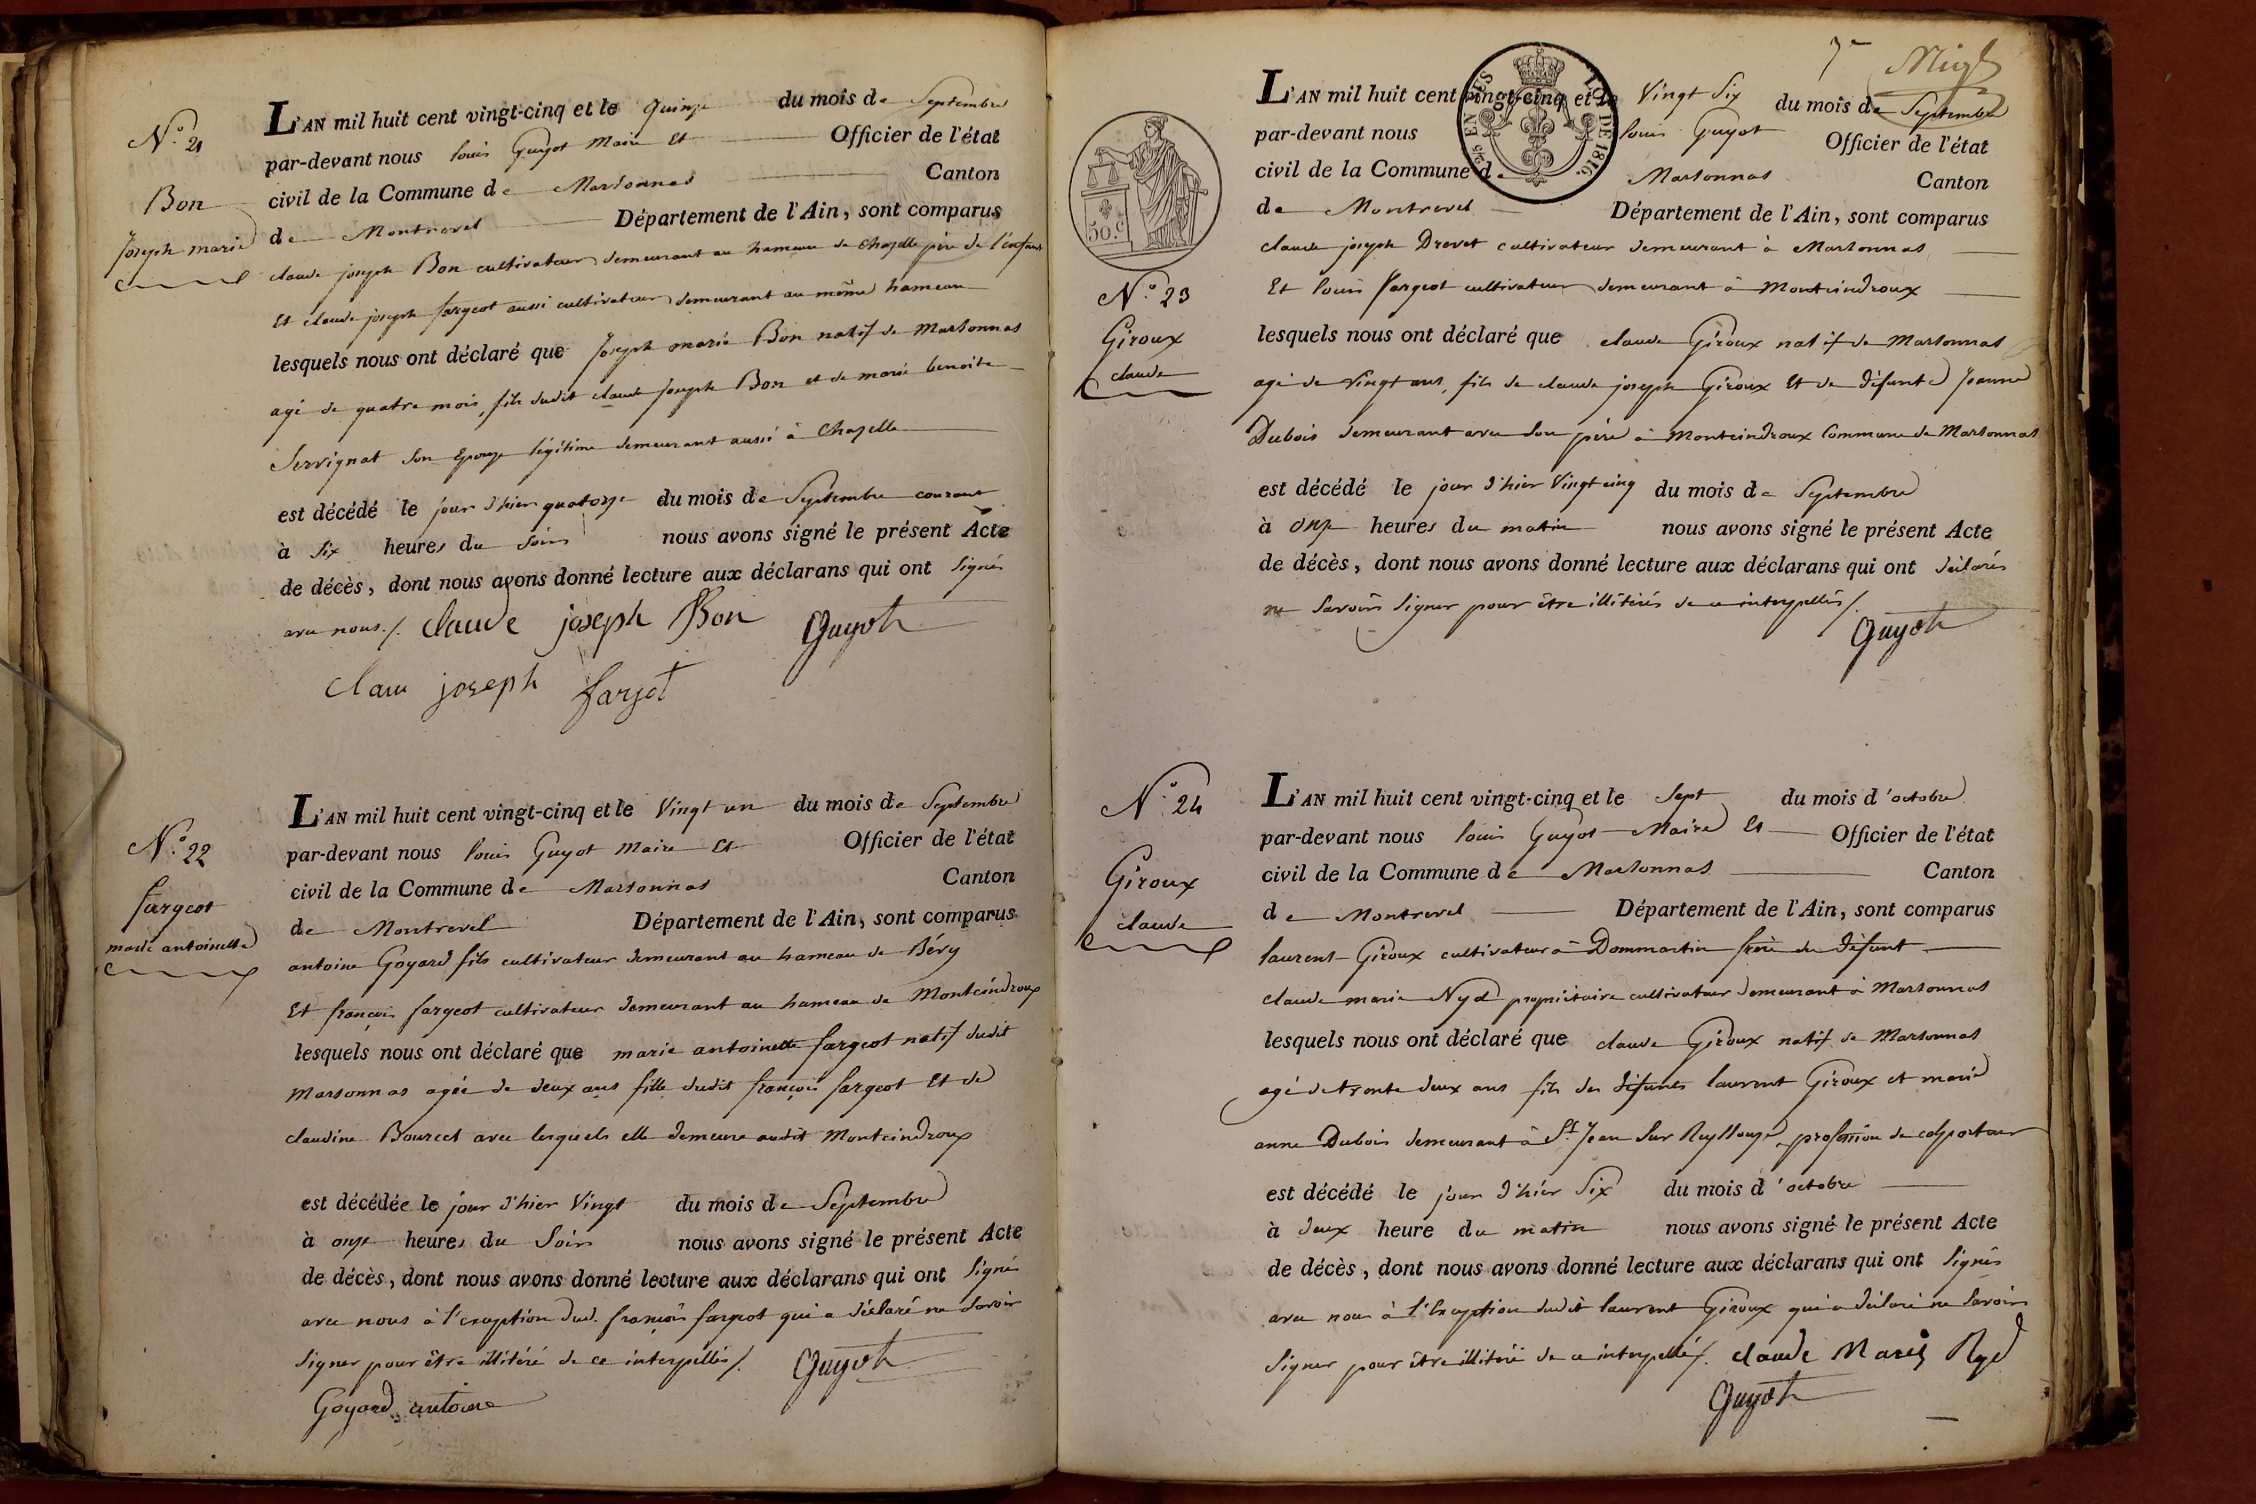 N.o 21
Bon
Joseph marie
L'AN mil huit cent vingt-cinq et le quinze du mois de Septembre
par-devant nous louis Guyot Maire et Officier de l'état
civil de la Commune de Marsonnas Canton
de Montrevel Département de l'Ain, sont comparus
claude joseph Bon cultivateur demeurant au hameau de Chazelle père de l'enfant
Et claude joseph fargeot aussi cultivateur demeurant au même hameau
lesquels nous ont déclaré que Joseph marie Bon natif de Marsonnas
agé de quatre mois, fils dudit claude joseph Bon et de marie benoite
Servignat son Epouze légitime demeurant aussi à Chazelle
est décédé le jour d'hier quatorze du mois de Septembre courant
à Six heures du Soir nous avons signé le présent Acte
de décès, dont nous avons donné lecture aux déclarans qui ont Signés
avec nous ./. claude joseph Bon Guyot
Clau joseph farjot
N.o 22
fargeot
marie antoinette
L'AN mil huit cent vingt-cinq et le Vingt un du mois de Septembre
par-devant nous louis Guyot Maire Et Officier de l'état
civil de la Commune de Marsonnas Canton
de Montrevel Département de l'Ain, sont comparus
antoine Goyard fils cultivateur demeurant au hameau de Bévy
Et françois fargeot cultivateur demeurant au hameau de Montcindroux
lesquels nous ont déclaré que marie antoinette fargeot natif dudit
Marsonnas agée de deux ans fille dudit françois fargeot Et de
claudine Bourcet avec lesquels elle demeure audit Montcindroux
est décédée le jour d'hier Vingt du mois de Septembre
à onze heures du Soir nous avons signé le présent Acte
de décès, dont nous avons donné lecture aux déclarans qui ont Signé
avec nous à l'exception dud. françois fargeot qui a déclaré ne Savoir
Signer pour être illitéré de ce interpellés /. Guyot
Goyard antoine
7e
L'AN mil huit cent vingt-cinq et le Vingt Six du mois de Septembre
par-devant nous louis Guyot Officier de l'état
civil de la Commune de Marsonnas Canton
de Montrevel Département de l'Ain, sont comparus
EN SUS
LOI DE 1816.
50.c
N.o 23
Giroux
claude
claude joseph Drevet cultivateur demeurant à Marsonnas
Et louis fargeot cultivateur demeurant à Montcindroux
lesquels nous ont déclaré que claude Giroux natif de Marsonnas
agé de Vingt ans, fils de claude joseph Giroux Et de défunte Jeanne
Dubois demeurant avec son père à Montcindroux Commune de Marsonnas
est décédé le jour d'hier Vingt cinq du mois de Septembre
à onze heures du matin nous avons signé le présent Acte
de décès, dont nous avons donné lecture aux déclarans qui ont déclarés
ne Savoirs Signer pour être illitérés de ce interpellés /.
Guyot
N.o 24
Giroux
claude
L'AN mil huit cent vingt-cinq et le Sept du mois d'octobre
par-devant nous louis Guyot Maire Et Officier de l'état
civil de la Commune de Marsonnas Canton
de Montrevel Département de l'Ain, sont comparus
laurent Giroux cultivateur à Dommartin frère du défunt
claude marie Nyd propriétaire cultivateur demeurant à Marsonnas
lesquels nous ont déclaré que claude Giroux natif de Marsonnas
agé de trente deux ans fils des défunts laurent Giroux et marie
anne Dubois demeurant à St Jean Sur Reyssouze, profession de colporteur
est décédé le jour d'hier Six du mois d'octobre
à deux heure du matin nous avons signé le présent Acte
de décès, dont nous avons donné lecture aux déclarans qui ont Signés
avec nous à l'Exception dudit laurent Giroux qui a déclaré ne Savoir
Signer pour être illitéré de ce interpellé /. claude Marie Nyd
Guyot